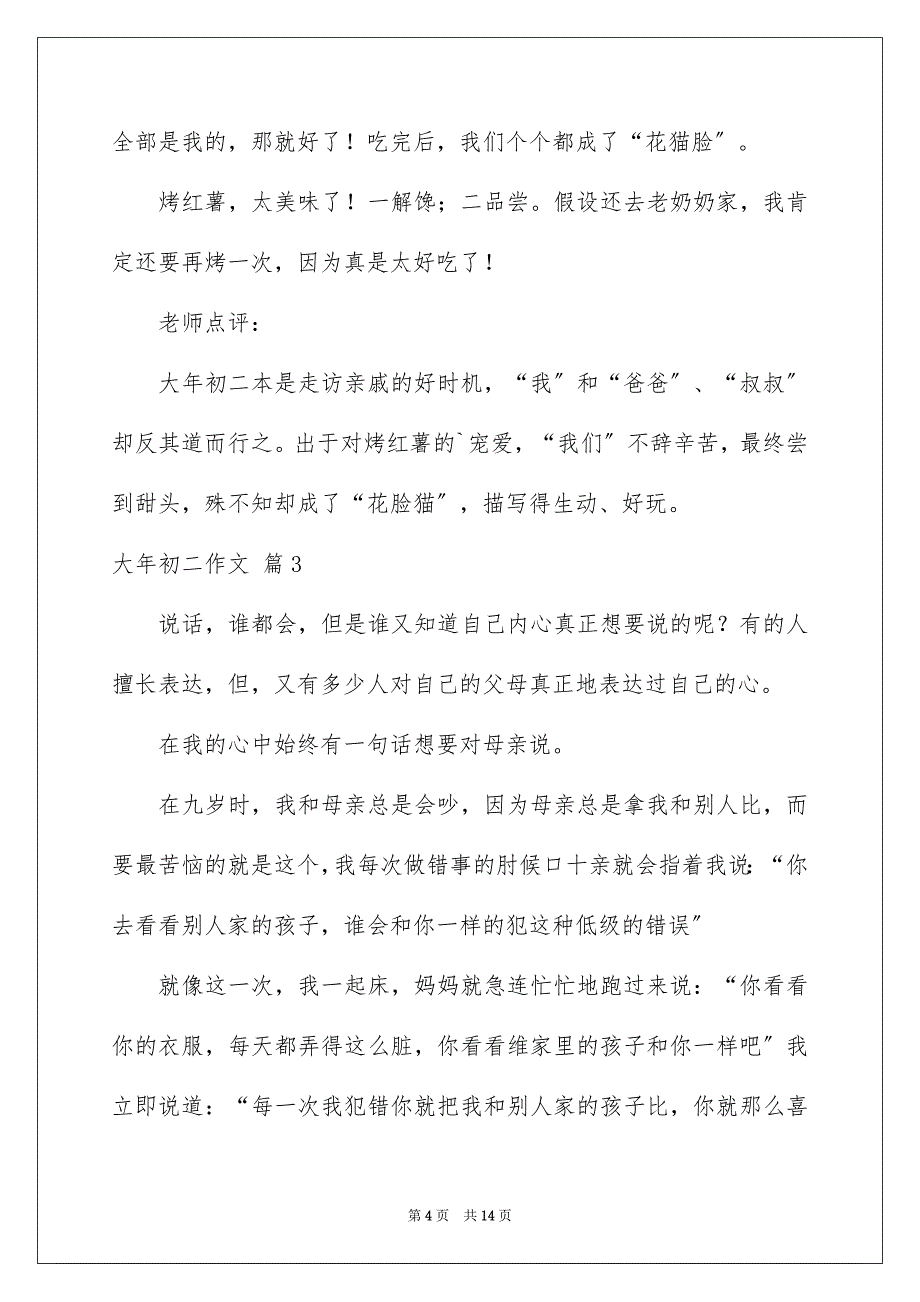 全部是我的，那就好了！吃完后，我们个个都成了“花猫脸〞。
烤红薯，太美味了！一解馋；二品尝。假设还去老奶奶家，我肯
定还要再烤一次，因为真是太好吃了！
老师点评：
大年初二本是走访亲戚的好时机，“我〞和“爸爸〞、“叔叔〞
却反其道而行之。出于对烤红薯的`宠爱，“我们〞不辞辛苦，最终尝
到甜头，殊不知却成了“花脸猫〞，描写得生动、好玩。
大年初二作文 篇3
说话，谁都会，但是谁又知道自己内心真正想要说的呢？有的人
擅长表达，但，又有多少人对自己的父母真正地表达过自己的心。
在我的心中始终有一句话想要对母亲说。
在九岁时，我和母亲总是会吵，因为母亲总是拿我和别人比，而
要最苦恼的就是这个，我每次做错事的肘候口十亲就会指着我说：“你
去看看别人家的孩子，谁会和你一样的犯这种低级的错误〞
就像这一次，我一起床，妈妈就急连忙忙地跑过来说：“你看看
你的衣服，每天都弄得这么脏，你看看维家里的孩子和你一样吧〞我
立即说道：“每一次我犯错你就把我和别人家的孩子比，你就那么喜
第4页 共14页